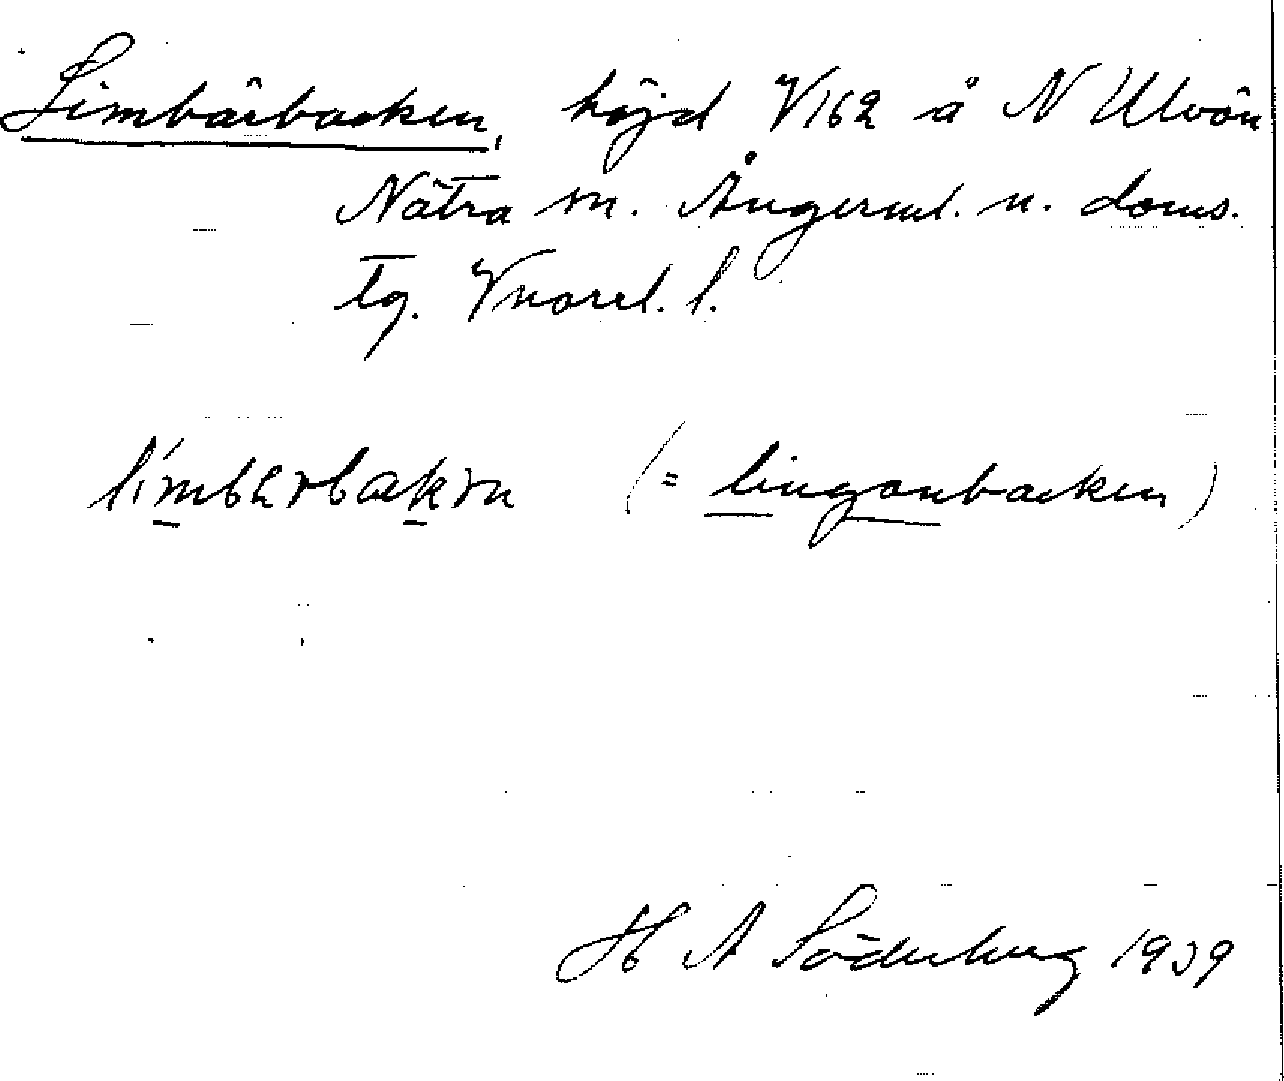 Limbärbacken, höjd V162 å N Ulvön
Nätra sn. Ångerml. n. doms.
tg. Vnorrl. l.
(= lingonbacken)
H A Söderberg 1939